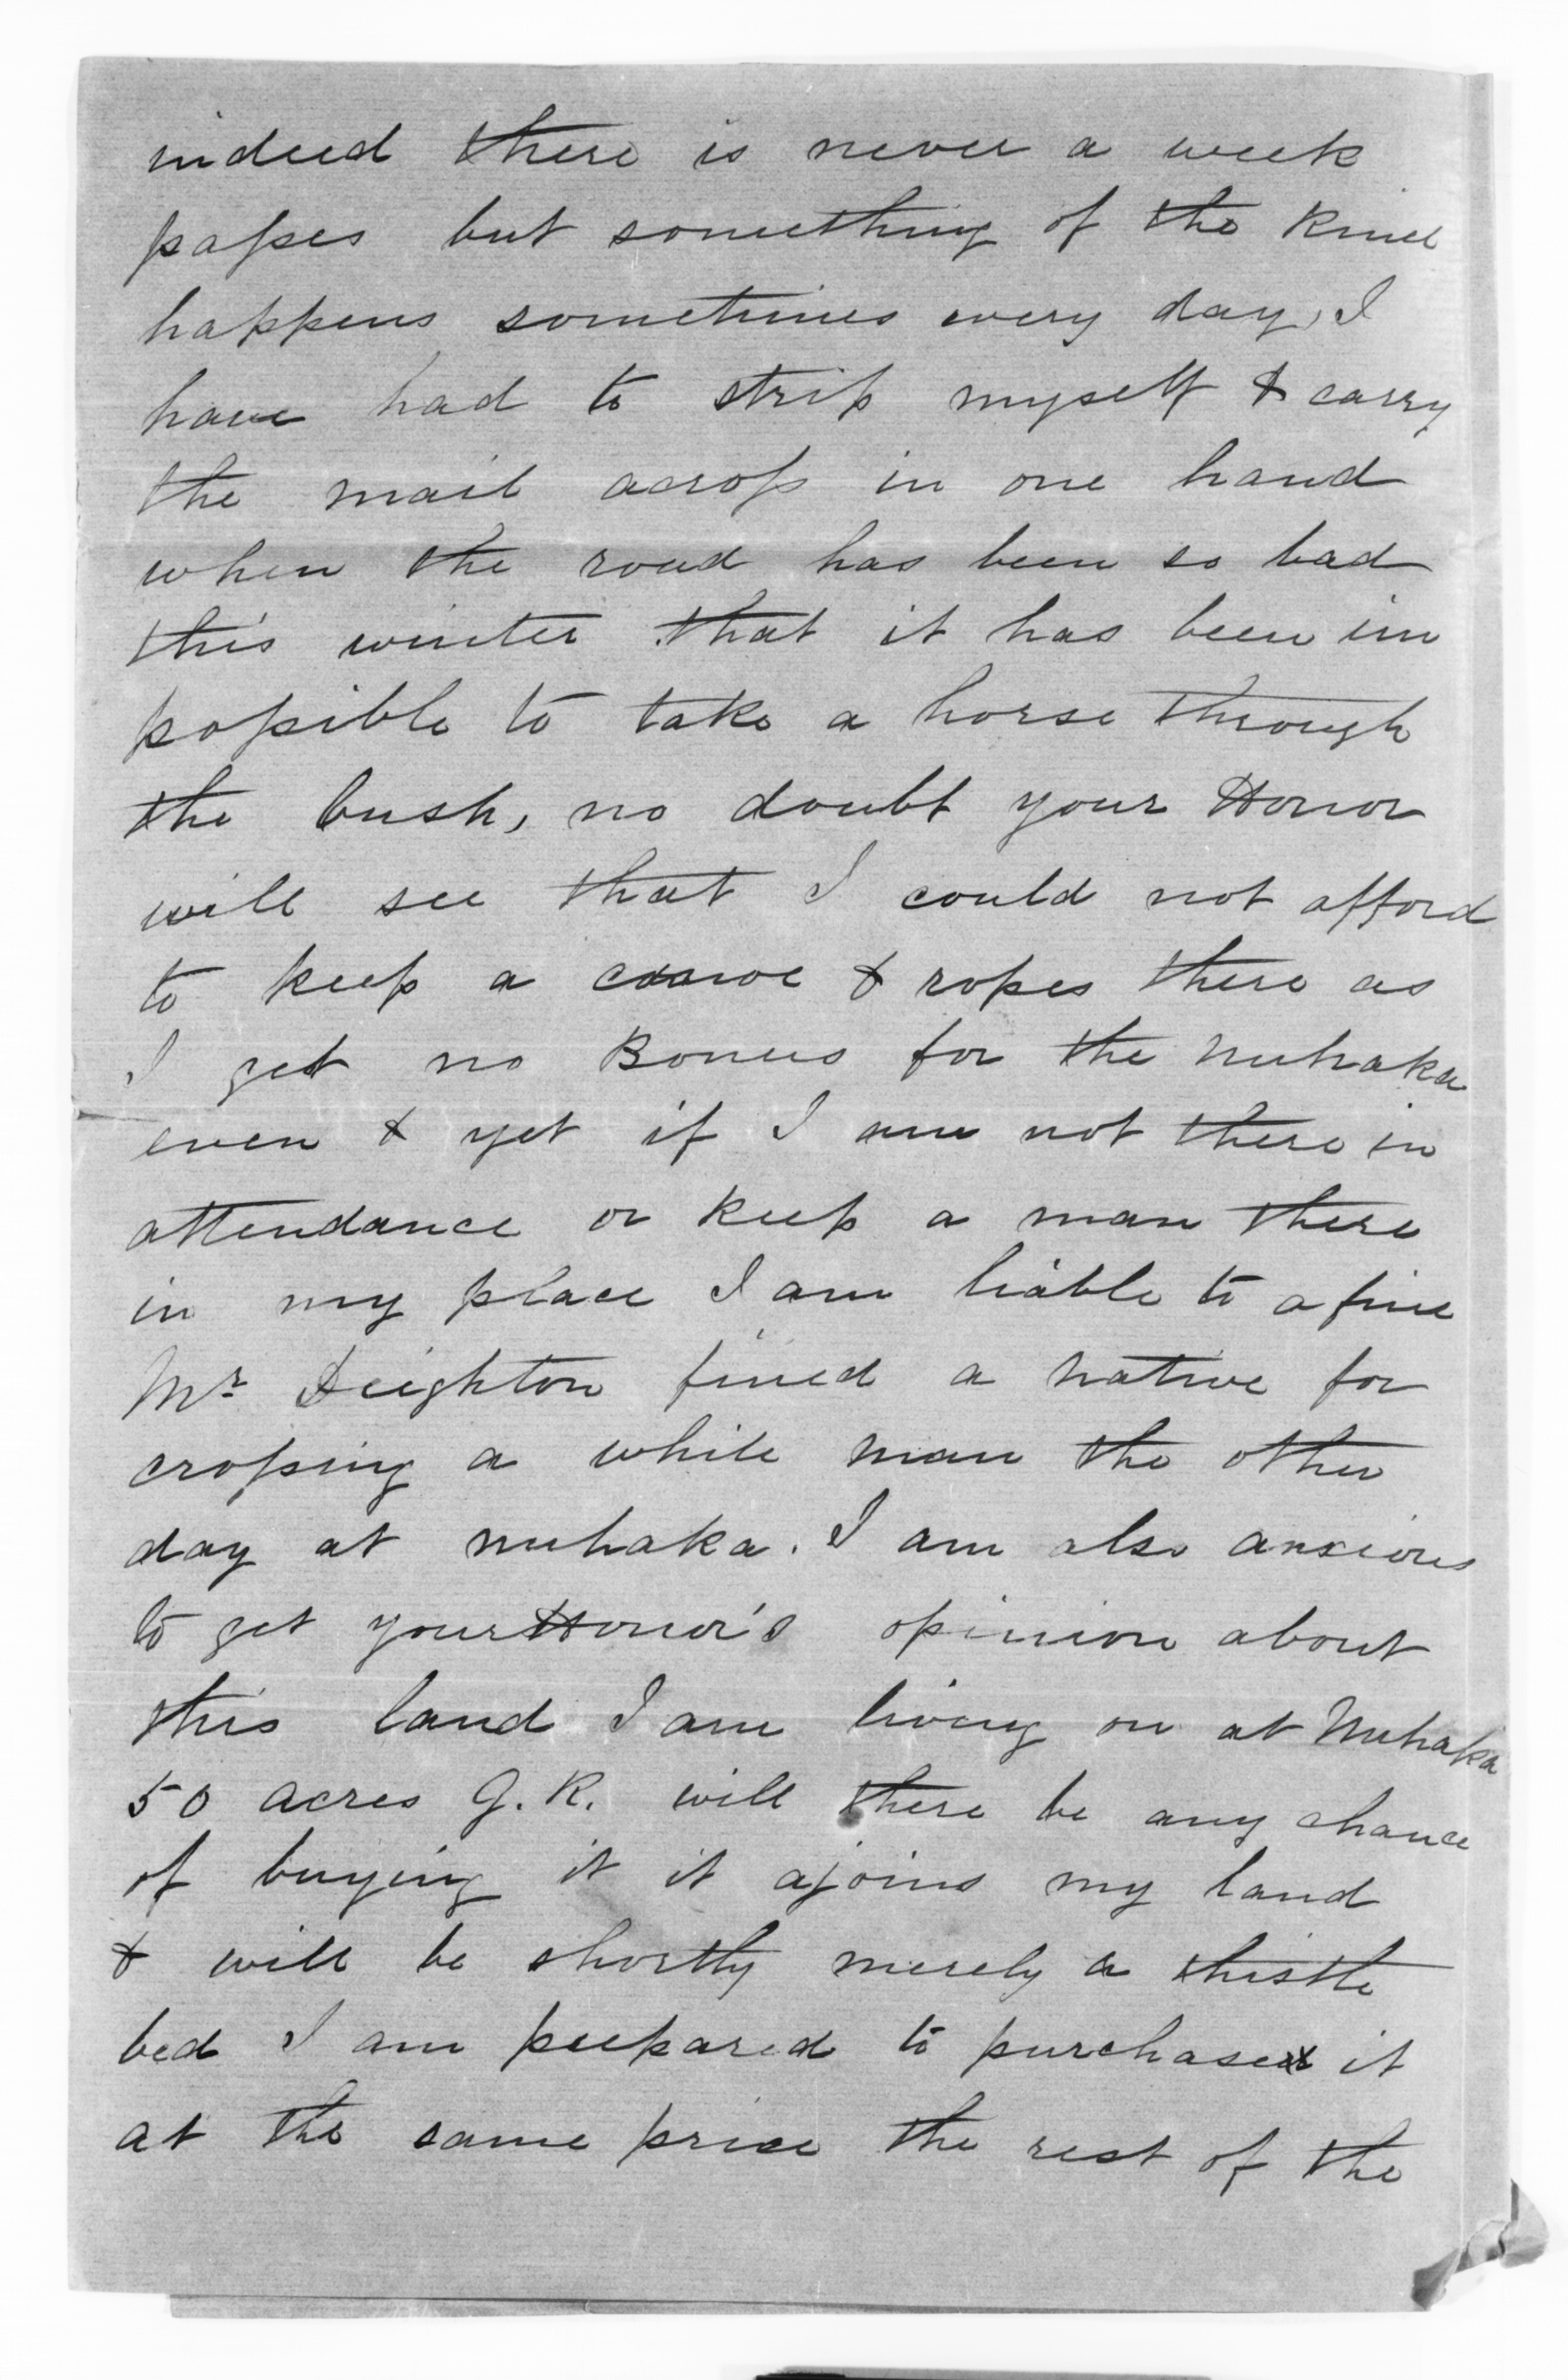 indeed there is never a week
passes but something of the kind
happens sometimes every day, I
have had to strip myself & carry
the mail across in one hand
when the road has been so bad
this winter that it has been im
possible to take a horse through
the bush, no doubt your Honor
will see that I could not afford
to keep a canoe & ropes there as
I get no Bonus for the Nuhaka
even & yet if I am not there in
attendance or keep a man there
in my place I am liable to a fine
Mr Deighton fined a native for
crossing a white man the other
day at nuhaka. I am also anxious
to get your Honor's opinion about
this land I am living on at Nuhaka
50 acres G.R. will there be any chance
of buying it it ajoins my land
& will be shortly merely a thistle
bed I am prepared to purchase it
at the same price the rest of the